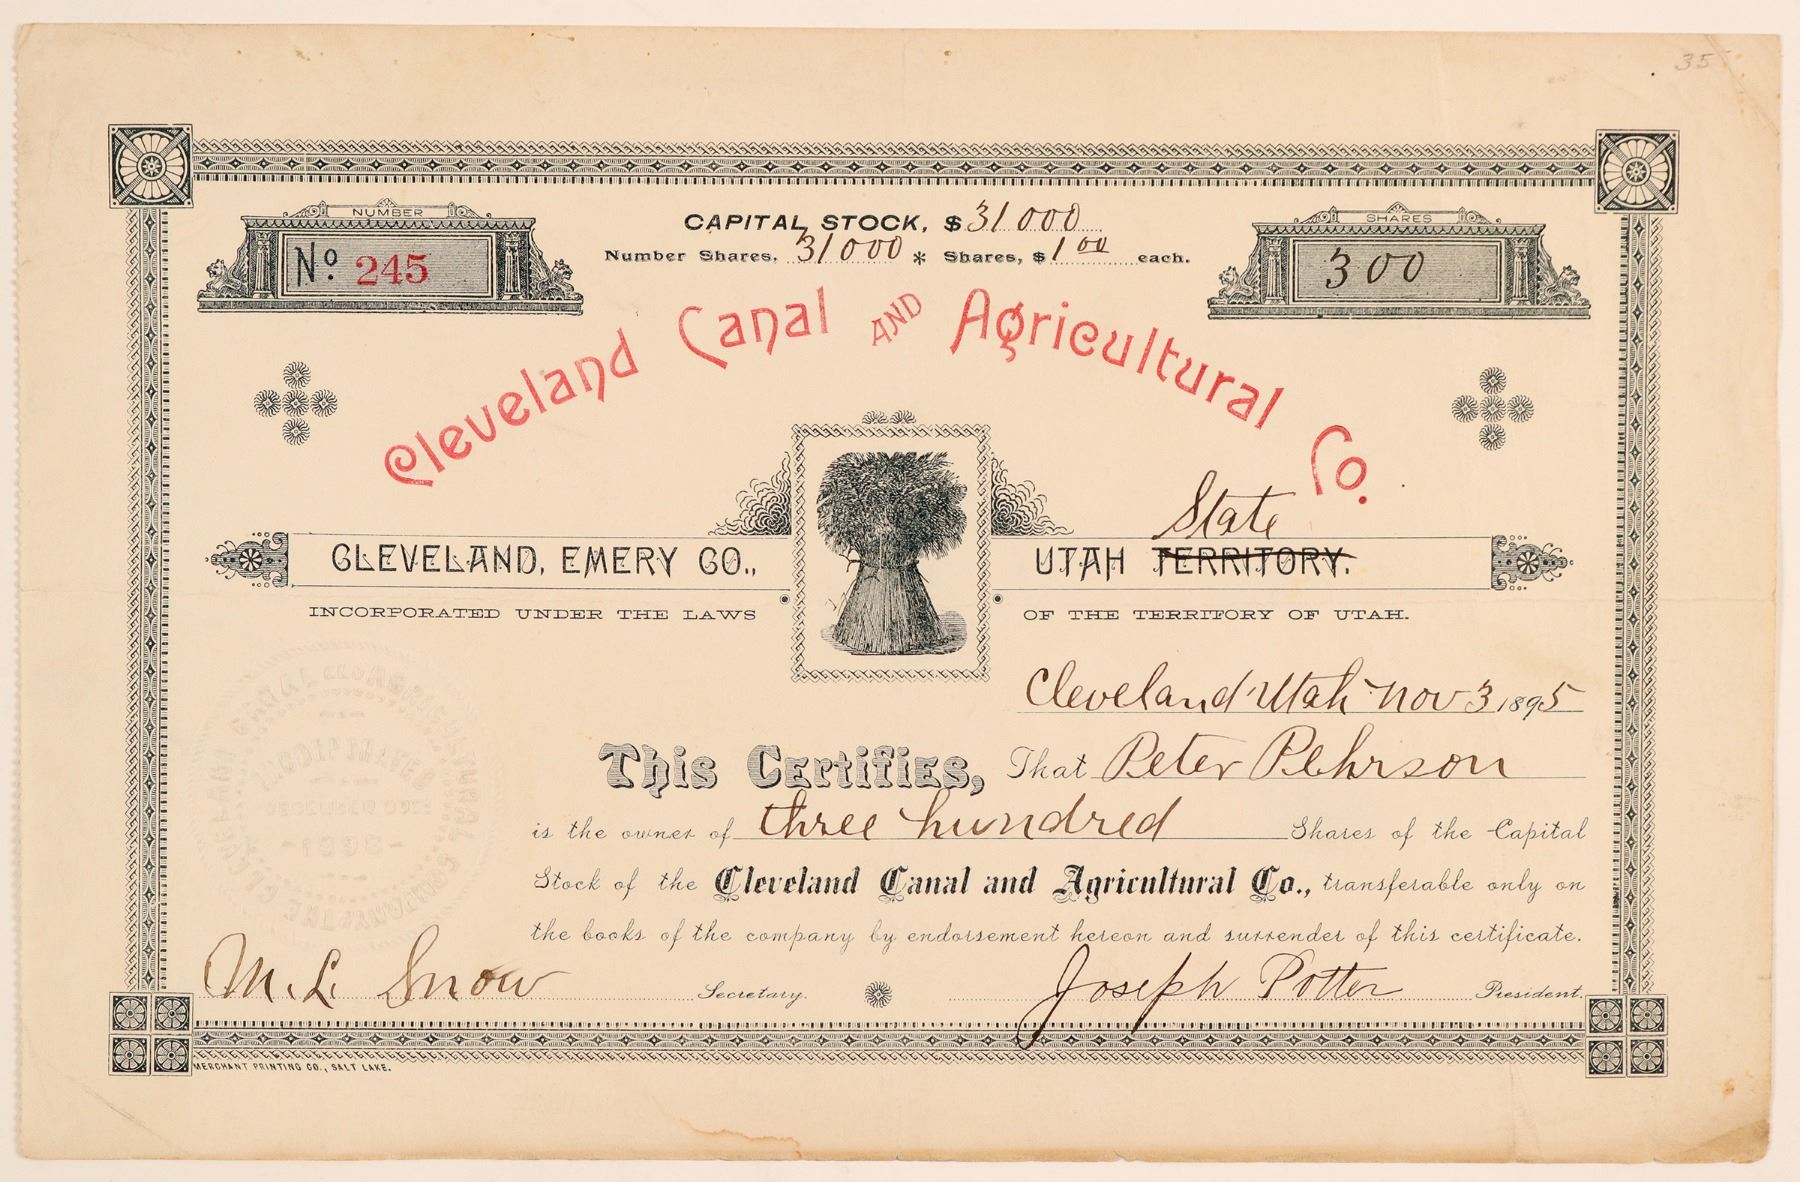 35
NUMBER
No. 245
CAPITAL STOCK, $ 31000
Number Shares, 31000 * Shares, $ 1 00 each.
SHARES
300
Cleveland Canal AND Agricultural Co.
State
CLEVELAND, EMERY CO., UTAH TERRITORY.
INCORPORATED UNDER THE LAWS OF THE TERRITORY OF UTAH.
Cleveland Utah Nov 3 1895
This Certifies, That Peter Pehrson
is the owner of three hundred Shares of the Capital
Stock of the Cleveland Canal and Agricultural Co., transferable only on
the books of the company by endorsement hereon and surrender of this certificate.
THE CLEVELAND CANAL AND AGRICULTURAL COMPANY
INCORPORATED
M. L. Snow Secretary. Joseph Potter President.
MERCHANT PRINTING CO., SALT LAKE.